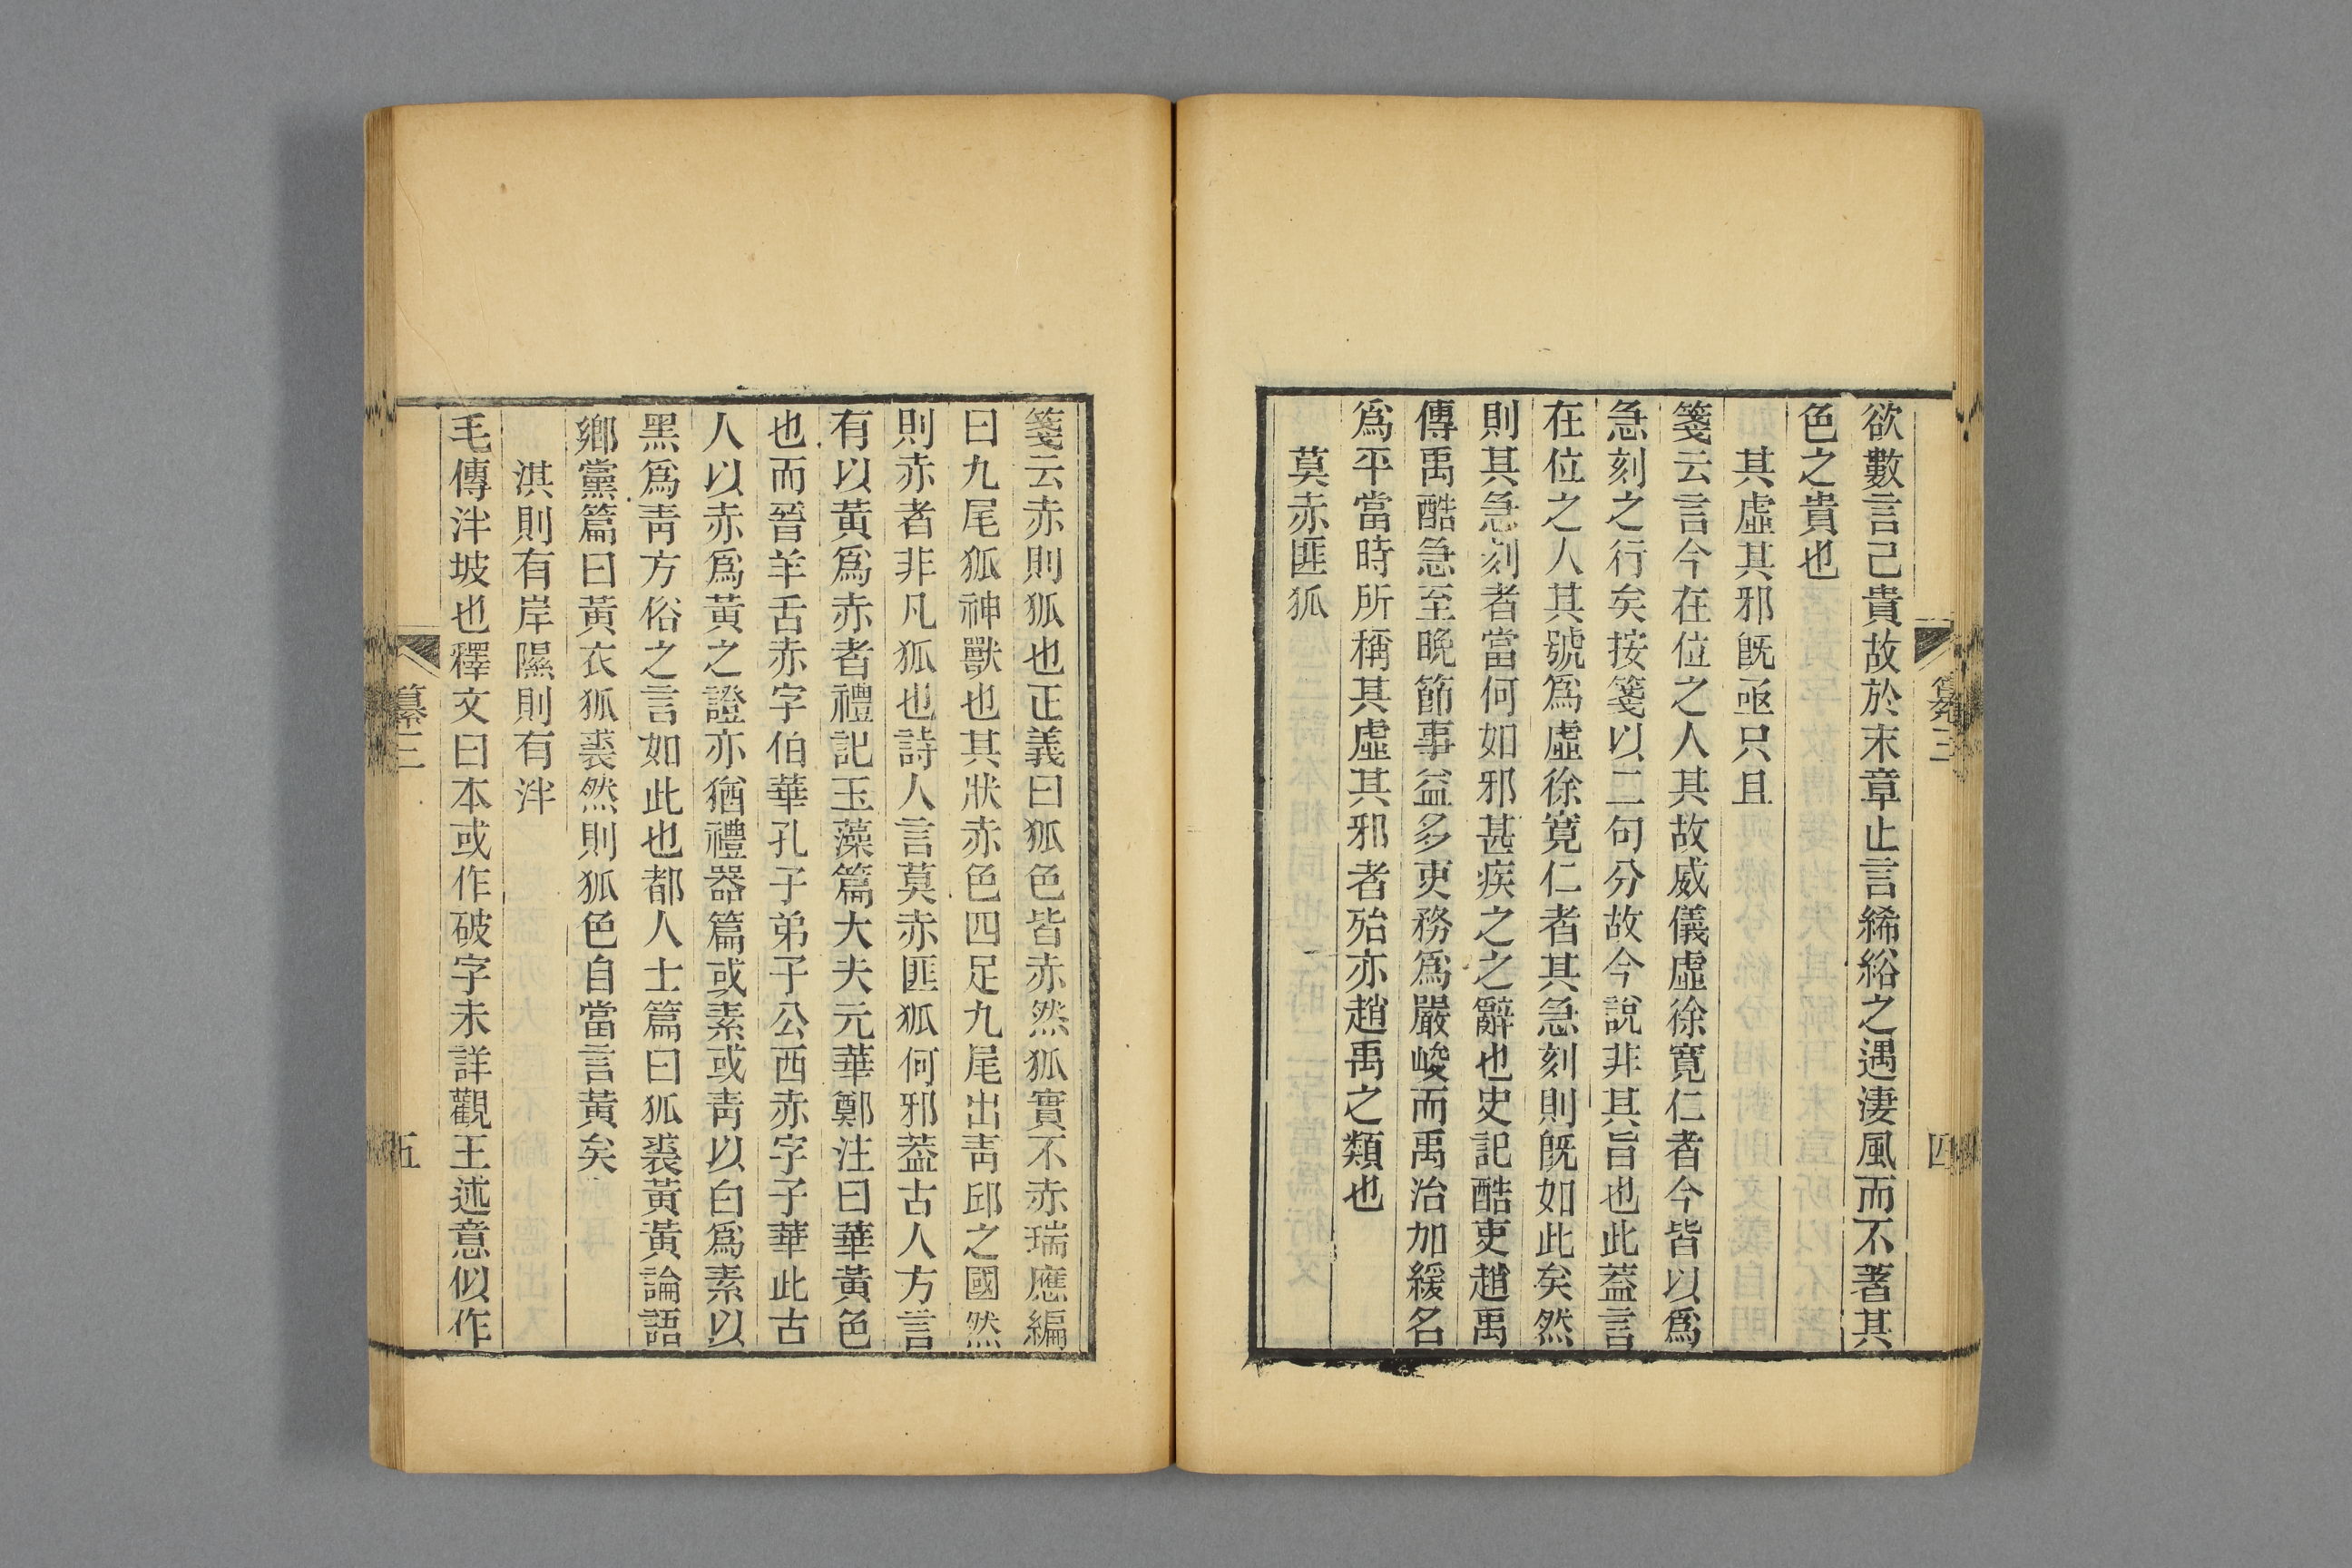 欲數言己貴故於末章止言絺綌之遇淒風而不著其
色之貴也
其虛其邪旣亟只且
箋云言今在位之人其故威儀虛徐寬仁者今皆以爲
急刻之行矣按箋以二句分故今說非其旨也此葢言
在位之人其號爲虛徐寬仁者其急刻則旣如此矣然
則其急刻者當何如邪甚疾之之辭也史記酷吏趙禹
傳禹酷急至晚節事益多吏務爲嚴峻而禹治加緩名
爲平當時所稱其虛其邪者殆亦趙禹之類也
莫赤匪狐
箋云赤則狐也正義曰狐色皆赤然狐實不赤瑞應編
曰九尾狐神獸也其狀赤色四足九尾出靑邱之國然
則赤者非凡狐也詩人言莫赤匪狐何邪葢古人方言
有以黃爲赤者禮記玉藻篇大夫元華鄭注曰華黃色
也而晉羊舌赤字伯華孔子弟子公西赤字子華此古
人以赤爲黃之證亦猶禮器篇或素或靑以白爲素以
黑爲靑方俗之言如此也都人士篇曰狐裘黃黃論語
鄕黨篇曰黃衣狐裘然則狐色自當言黃矣
淇則有岸隰則有泮
毛傳泮坡也釋文曰本或作破字未詳觀王述意似作
三
五
三
四